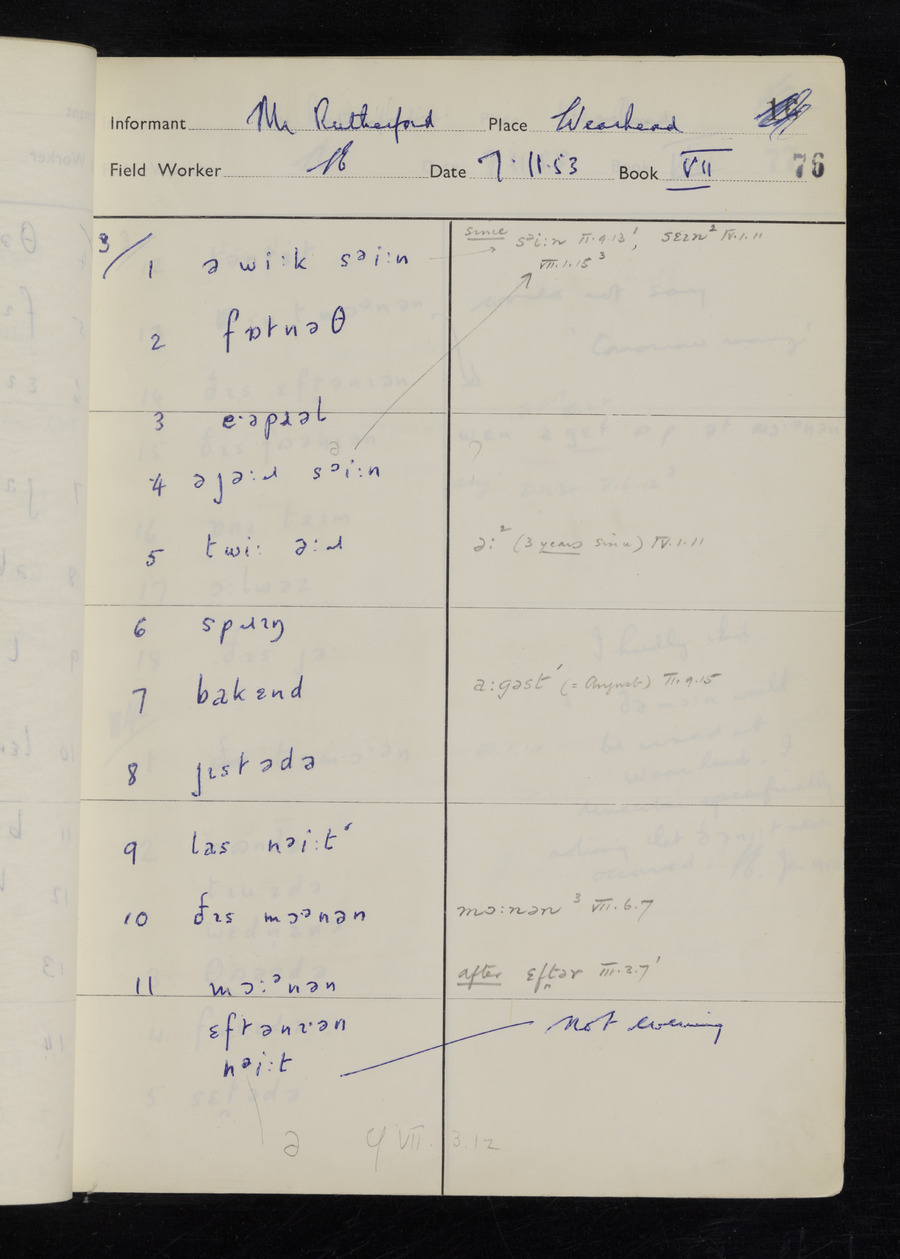 Informant Mr Rutherford Place Wearhead
Field Worker Date 7·11·53 Book VII 76
3/ 1 ə wiːk səiːn
since səiːn II.9.13¹, sɛɪn² IV.1.11
VII.1.15³
2 fɒtnəθ
3 eˑəpɹəl
4 əjəːɹ səiːn
ə
5 twiː əːɹ
əː² (3 years since) IV.1.11
6 spɹɪŋ
7 bakɛnd
aːgəst¹ (= August) II.9.15
8 jɪstədə
9 las nəiːt
10 ðɪs mɔənən
mɔːnən³ VII.6.7
11 mɔːənən
after ɛftər III.2.7¹
ɛftənɪən
not evening
nəiːt
ə VII.3.12